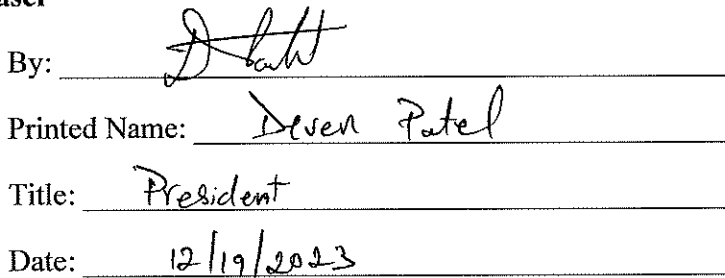 By:
Printed Name: Deven Patel
Title: President
Date: 12/19/2023